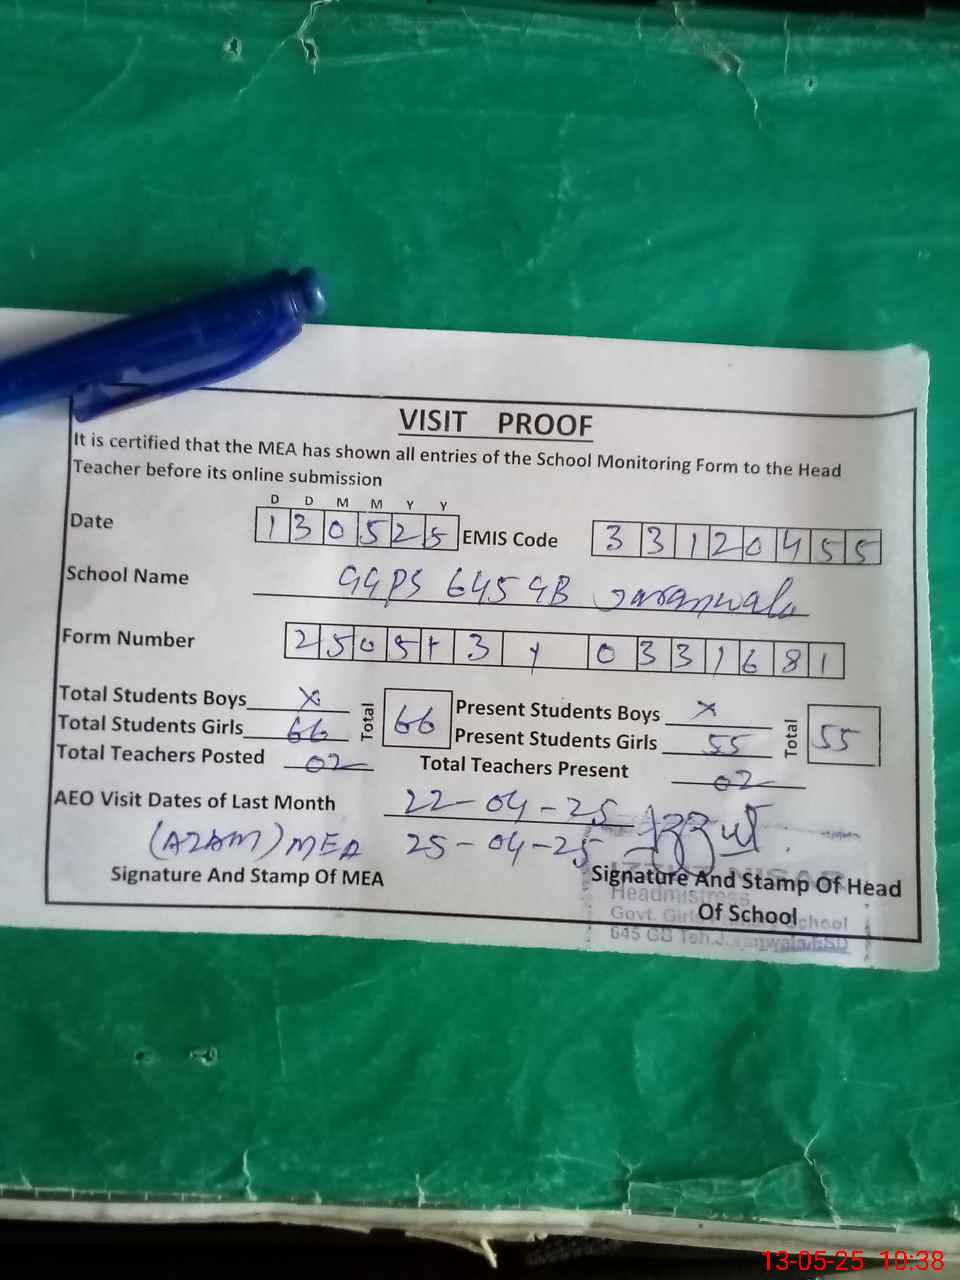 VISIT PROOF
It is certified that the MEA has shown all entries of the School Monitoring Form to the Head
Teacher before its online submission
D D M M Y Y
Date 1 3 0 5 2 5 EMIS Code 3 3 1 2 0 4 5 5
School Name GGPS 645 GB Jaranwala
Form Number 2 5 0 5 + 3 y 0 3 3 1 6 8 1
Total Students Boys x Total 66 Present Students Boys x Total 55
Total Students Girls 66 Present Students Girls 55
Total Teachers Posted 02 Total Teachers Present 02
AEO Visit Dates of Last Month 22-04-25
(AZAM) MEA 25-04-25
Signature And Stamp Of MEA Signature And Stamp Of Head
Of School
NISAR
Headmistress
Govt. Girls School
645 GB Teh. FSD
13-05-25 10:38